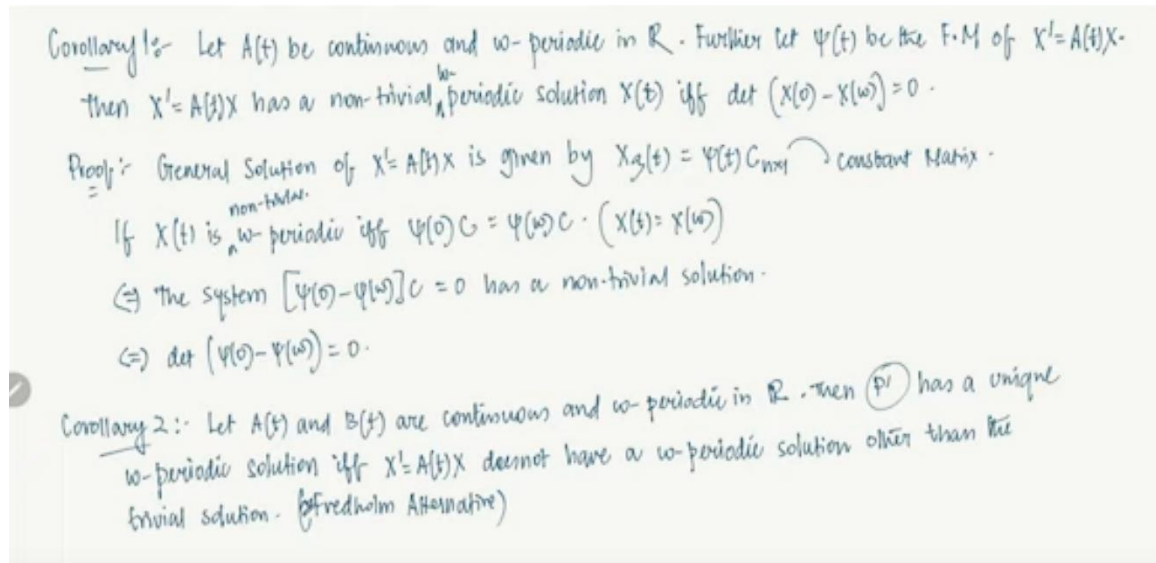 Corollary 1:- Let A(t) be continuous and ω-periodic in ℝ. Further let ψ(t) be the F.M of X'=A(t)X.
ω-
then X'=A(t)X has a non-trivial periodic solution X(t) iff det (X(0)-X(ω))=0.
Proof:- General Solution of X'=A(t)X is given by X_g(t) = ψ(t) C_{n×1} constant Matrix.
non-trivial.
If X(t) is ω-periodic iff ψ(0)C = ψ(ω)C. (X(t)=X(ω))
⇔ The system [ψ(0)-ψ(ω)]C = 0 has a non-trivial solution.
⇔ det (ψ(0)-ψ(ω)) = 0.
Corollary 2:- Let A(t) and B(t) are continuous and ω-periodic in ℝ. Then P1 has a unique
ω-periodic solution iff X'=A(t)X doesnot have a ω-periodic solution other than the
trivial solution. (Fredholm Alternative)